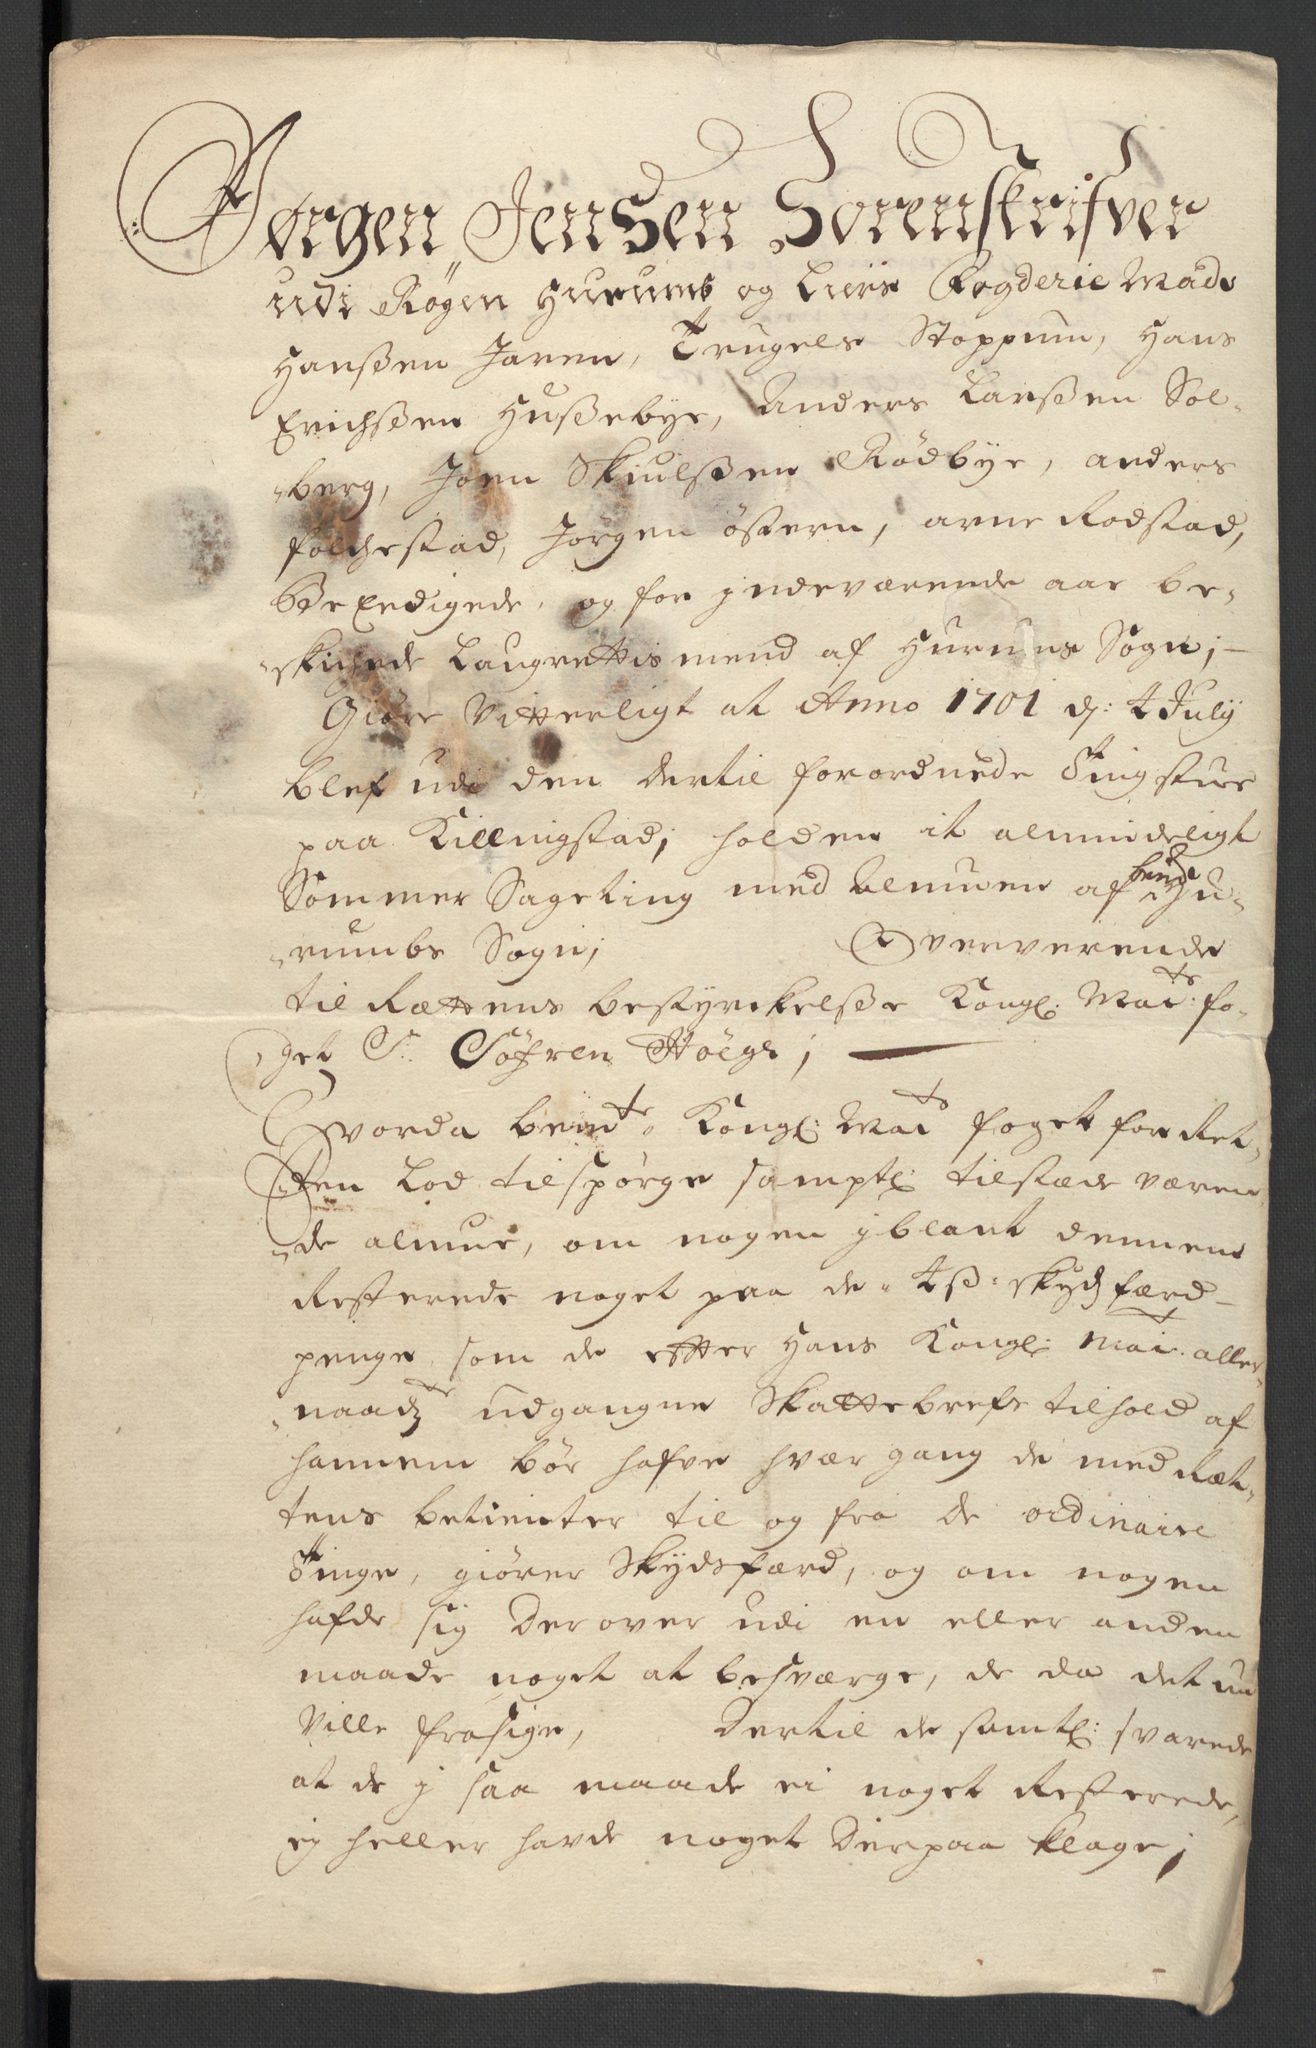 Jørgen Jenßen Sorenskrifver
udi Røgen Hurumb og Liers Fogderie Mads
Hanßen Jaren, Trugels Stoppum, Hans
Erichßen Hußebye, Anders Larßen Sol-
-berg, Joen Skiulßen Rødbye, anders
folchestad, Jørgen østern, arne Rodstad,
Be Eedigede, og for jndeværende aar be-
-skichede Laugrettis mend af Hurums Sogn;
Giøre Vitterligt at Anno 1701 d: 4 July
blef udi den dertil forordnede Tingstue
paa Killingstad; holden it almindeligt
Sommer Sageting med Almuen af bemte Hu-
-rumbs Sogn; Oververende
til Rættens bestyrckelße Kongl: Maits: fo-
-get Sr. Søfren Høeg;
Hvorda bemte Kongl: Maits foget for Ret-
-ten Lod tilspørge samptl: tilstæde væren
-de almue, om nogen jblant dennem
Resterede noget paa de 4 ß skydsfærd-
penge, som de efter Hans Kongl: Mait: aller-
-naadste udgangne Skattebrefs tilhold af
hannem bør hafve hvær gang de med Ræt-
tens betienter til og fra de ordinaire
Tinge, giører Skydsfærd, og om nogen
hafde sig derover udi en eller anden
maade noget at besværge, de da det nu
Ville frasige, Dertil de samtl: svarede
at de j saa maade ei noget Resterede,
ej heller havde noget Derpaa klage;